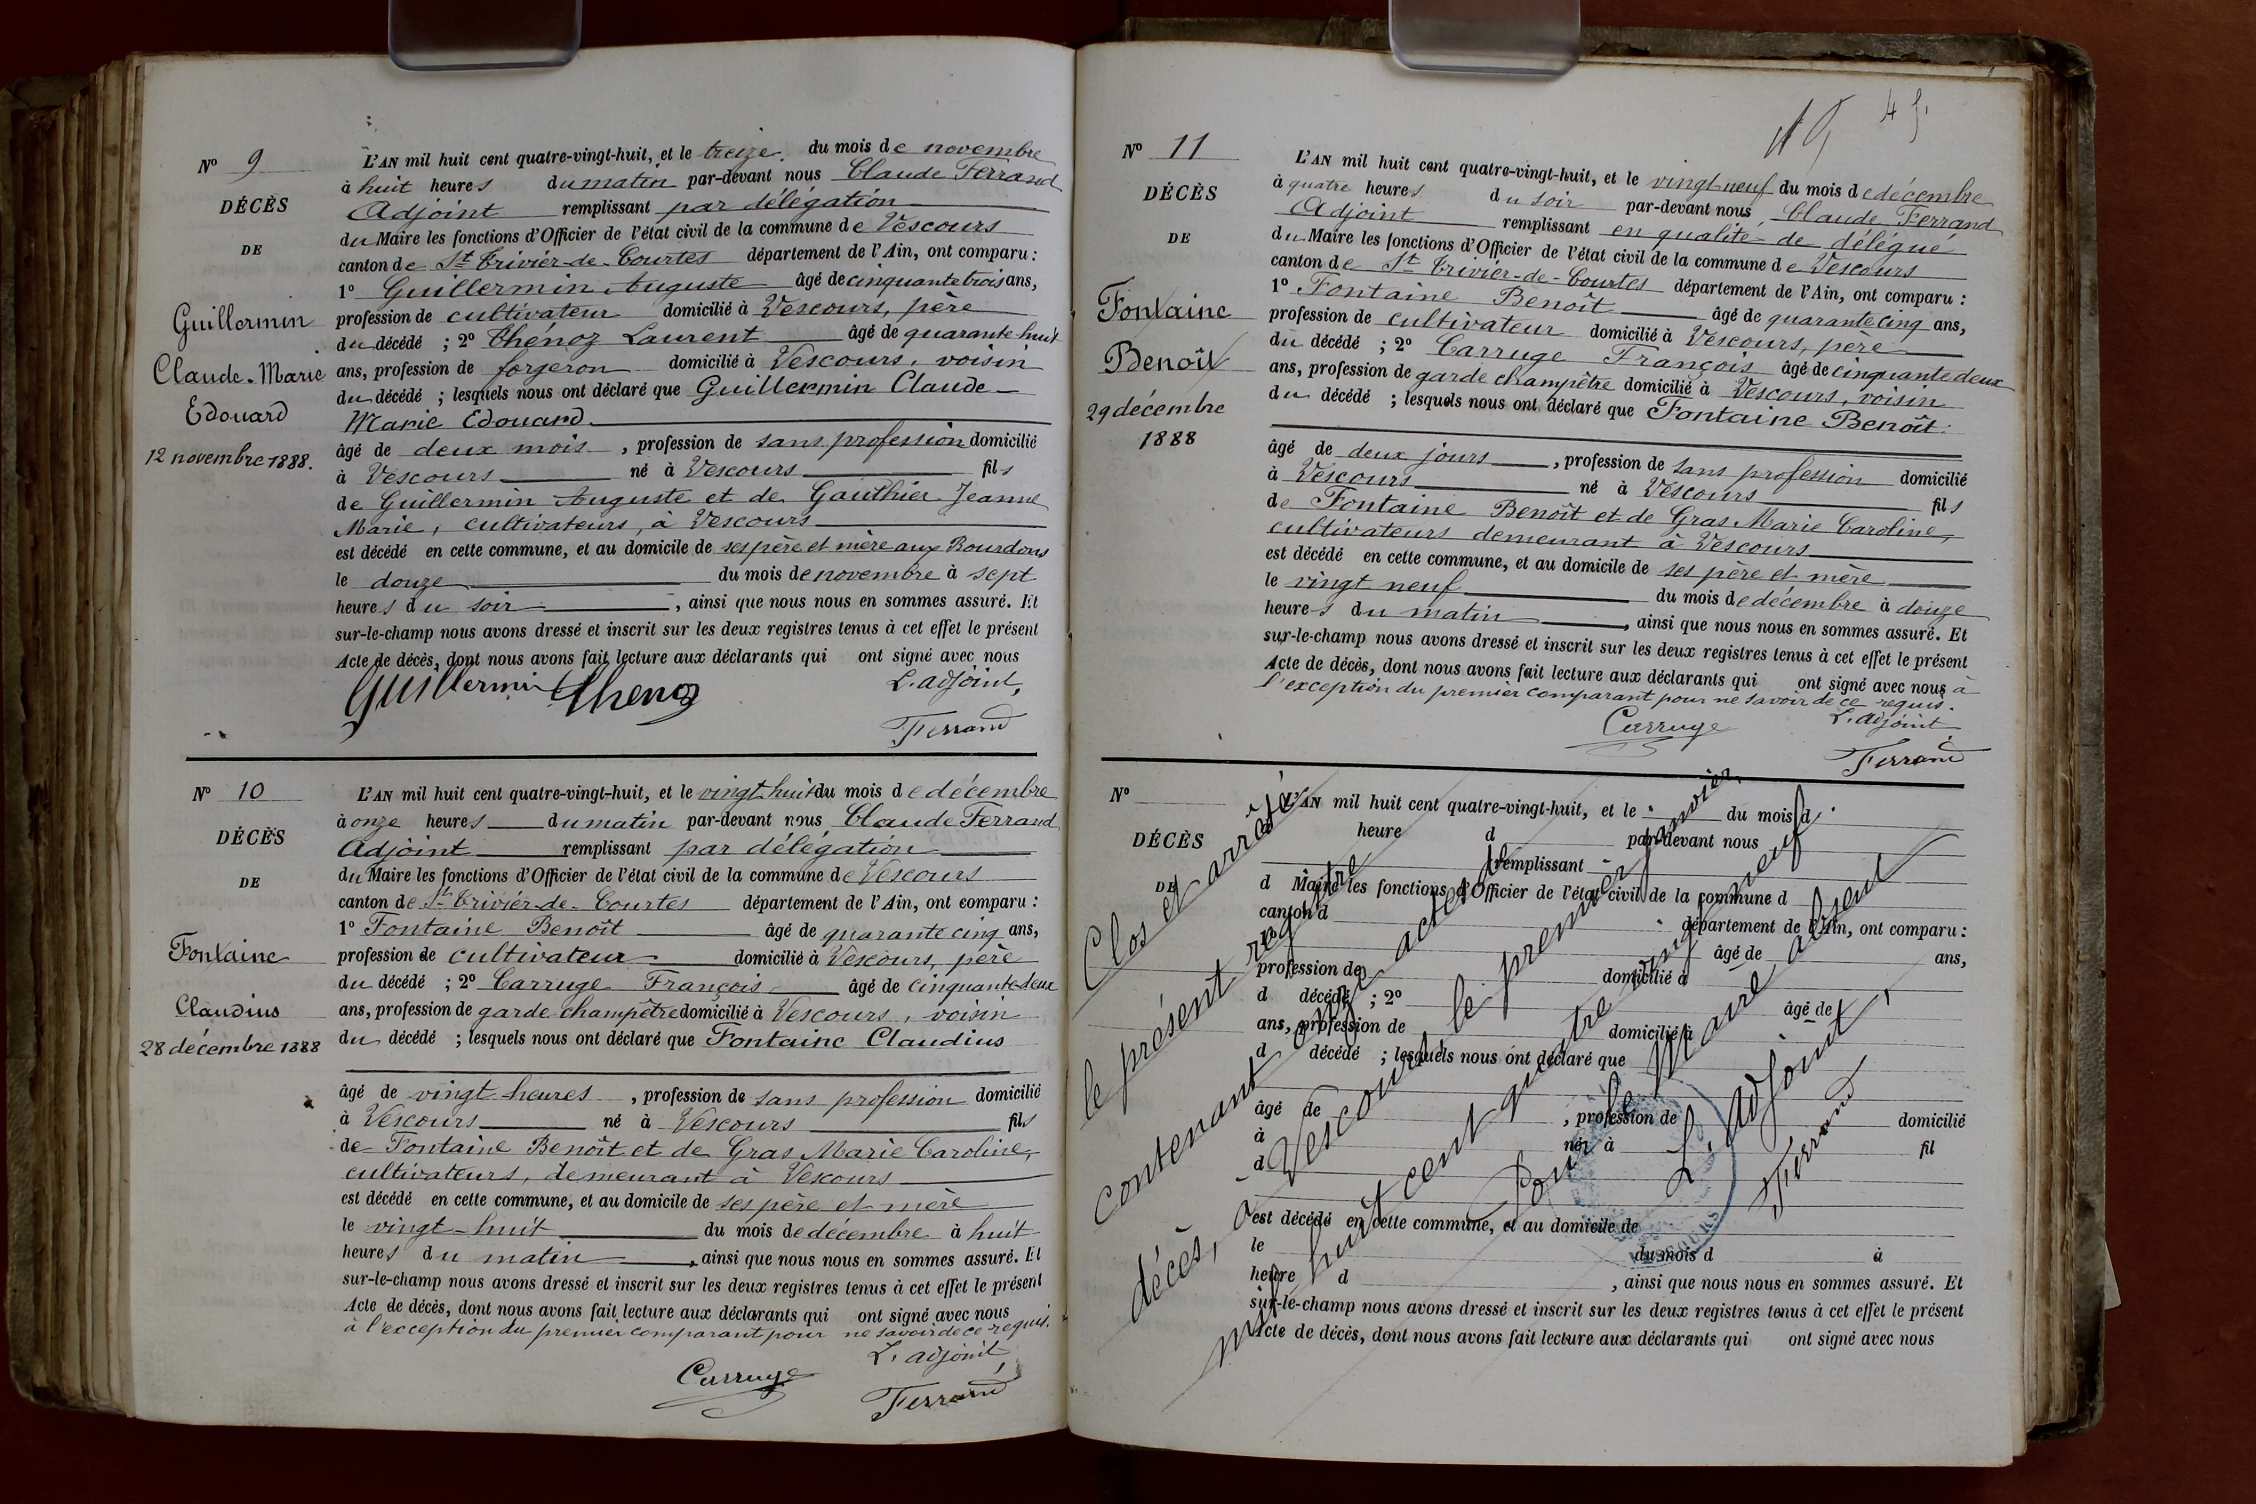 Nº 9
DÉCÈS
DE
Guillermin
Claude-Marie
Edouard
12 novembre 1888.
L'AN mil huit cent quatre-vingt-huit, et le treize du mois de novembre
à huit heures du matin par-devant nous Claude Ferrand
Adjoint remplissant par délégation
du Maire les fonctions d'Officier de l'état civil de la commune de Vescours
canton de St Trivier-de-Courtes département de l'Ain, ont comparu :
1º Guillermin Auguste âgé de cinquante trois ans,
profession de cultivateur domicilié à Vescours, père
du décédé ; 2º Thénoz Laurent âgé de quarante huit
ans, profession de forgeron domicilié à Vescours, voisin
du décédé ; lesquels nous ont déclaré que Guillermin Claude-
Marie Edouard
âgé de deux mois, profession de sans profession domicilié
à Vescours né à Vescours fils
de Guillermin Auguste et de Gauthier Jeanne
Marie, cultivateurs, à Vescours
est décédé en cette commune, et au domicile de ses père et mère aux Bourdons
le douze du mois de novembre à sept
heures du soir, ainsi que nous nous en sommes assuré. Et
sur-le-champ nous avons dressé et inscrit sur les deux registres tenus à cet effet le présent
Acte de décès, dont nous avons fait lecture aux déclarants qui ont signé avec nous
Guillermin Thenoz L. adjoint,
Ferrand
Nº 10
DÉCÈS
DE
Fontaine
Claudius
28 décembre 1888
L'AN mil huit cent quatre-vingt-huit, et le vingt huit du mois de décembre
à onze heures du matin par-devant nous Claude Ferrand
Adjoint remplissant par délégation
du Maire les fonctions d'Officier de l'état civil de la commune de Vescours
canton de St Trivier-de-Courtes département de l'Ain, ont comparu :
1º Fontaine Benoît âgé de quarante cinq ans,
profession de cultivateur domicilié à Vescours, père
du décédé ; 2º Carruge François âgé de cinquante-deux
ans, profession de garde champêtre domicilié à Vescours, voisin
du décédé ; lesquels nous ont déclaré que Fontaine Claudius
âgé de vingt heures, profession de sans profession domicilié
à Vescours né à Vescours fils
de Fontaine Benoît et de Gras Marie Caroline,
cultivateurs, demeurant à Vescours
est décédé en cette commune, et au domicile de ses père et mère
le vingt-huit du mois de décembre à huit
heures du matin, ainsi que nous nous en sommes assuré. Et
sur-le-champ nous avons dressé et inscrit sur les deux registres tenus à cet effet le présent
Acte de décès, dont nous avons fait lecture aux déclarants qui ont signé avec nous
à l'exception du premier comparant pour ne savoir de ce requis.
L. adjoint,
Carruge Ferrand
Nº 11
DÉCÈS
DE
Fontaine
Benoît
29 décembre
1888
L'AN mil huit cent quatre-vingt-huit, et le vingt neuf du mois de décembre
à quatre heures du soir par-devant nous Claude Ferrand
Adjoint remplissant en qualité de délégué
du Maire les fonctions d'Officier de l'état civil de la commune de Vescours
canton de St Trivier-de-Courtes département de l'Ain, ont comparu :
1º Fontaine Benoît âgé de quarante cinq ans,
profession de cultivateur domicilié à Vescours, père
du décédé ; 2º Carruge François âgé de cinquante deux
ans, profession de garde champêtre domicilié à Vescours, voisin
du décédé ; lesquels nous ont déclaré que Fontaine Benoît
âgé de deux jours, profession de sans profession domicilié
à Vescours né à Vescours fils
de Fontaine Benoît et de Gras Marie Caroline,
cultivateurs demeurant à Vescours
est décédé en cette commune, et au domicile de ses père et mère
le vingt neuf du mois de décembre à douze
heures du matin, ainsi que nous nous en sommes assuré. Et
sur-le-champ nous avons dressé et inscrit sur les deux registres tenus à cet effet le présent
Acte de décès, dont nous avons fait lecture aux déclarants qui ont signé avec nous à
l'exception du premier comparant pour ne savoir de ce requis.
Carruge L. adjoint
Ferrand
Nº
DÉCÈS
DE
L'AN mil huit cent quatre-vingt-huit, et le du mois d
heure d par-devant nous
remplissant
d Maire les fonctions d'Officier de l'état civil de la commune d
canton d département de l'Ain, ont comparu :
1º âgé de ans,
profession de domicilié à
d décédé ; 2º âgé de
ans, profession de domicilié à
d décédé ; lesquels nous ont déclaré que
âgé de , profession de domicilié
à né à fil
d
est décédé en cette commune, et au domicile de
le du mois d à
heure d , ainsi que nous nous en sommes assuré. Et
sur-le-champ nous avons dressé et inscrit sur les deux registres tenus à cet effet le présent
Acte de décès, dont nous avons fait lecture aux déclarants qui ont signé avec nous
Clos et arrêté
le présent registre
contenant onze actes de
décès, à Vescours, le premier janvier
mil huit cent quatre vingt neuf.
Pour le Maire absent
L. Adjoint,
Ferrand